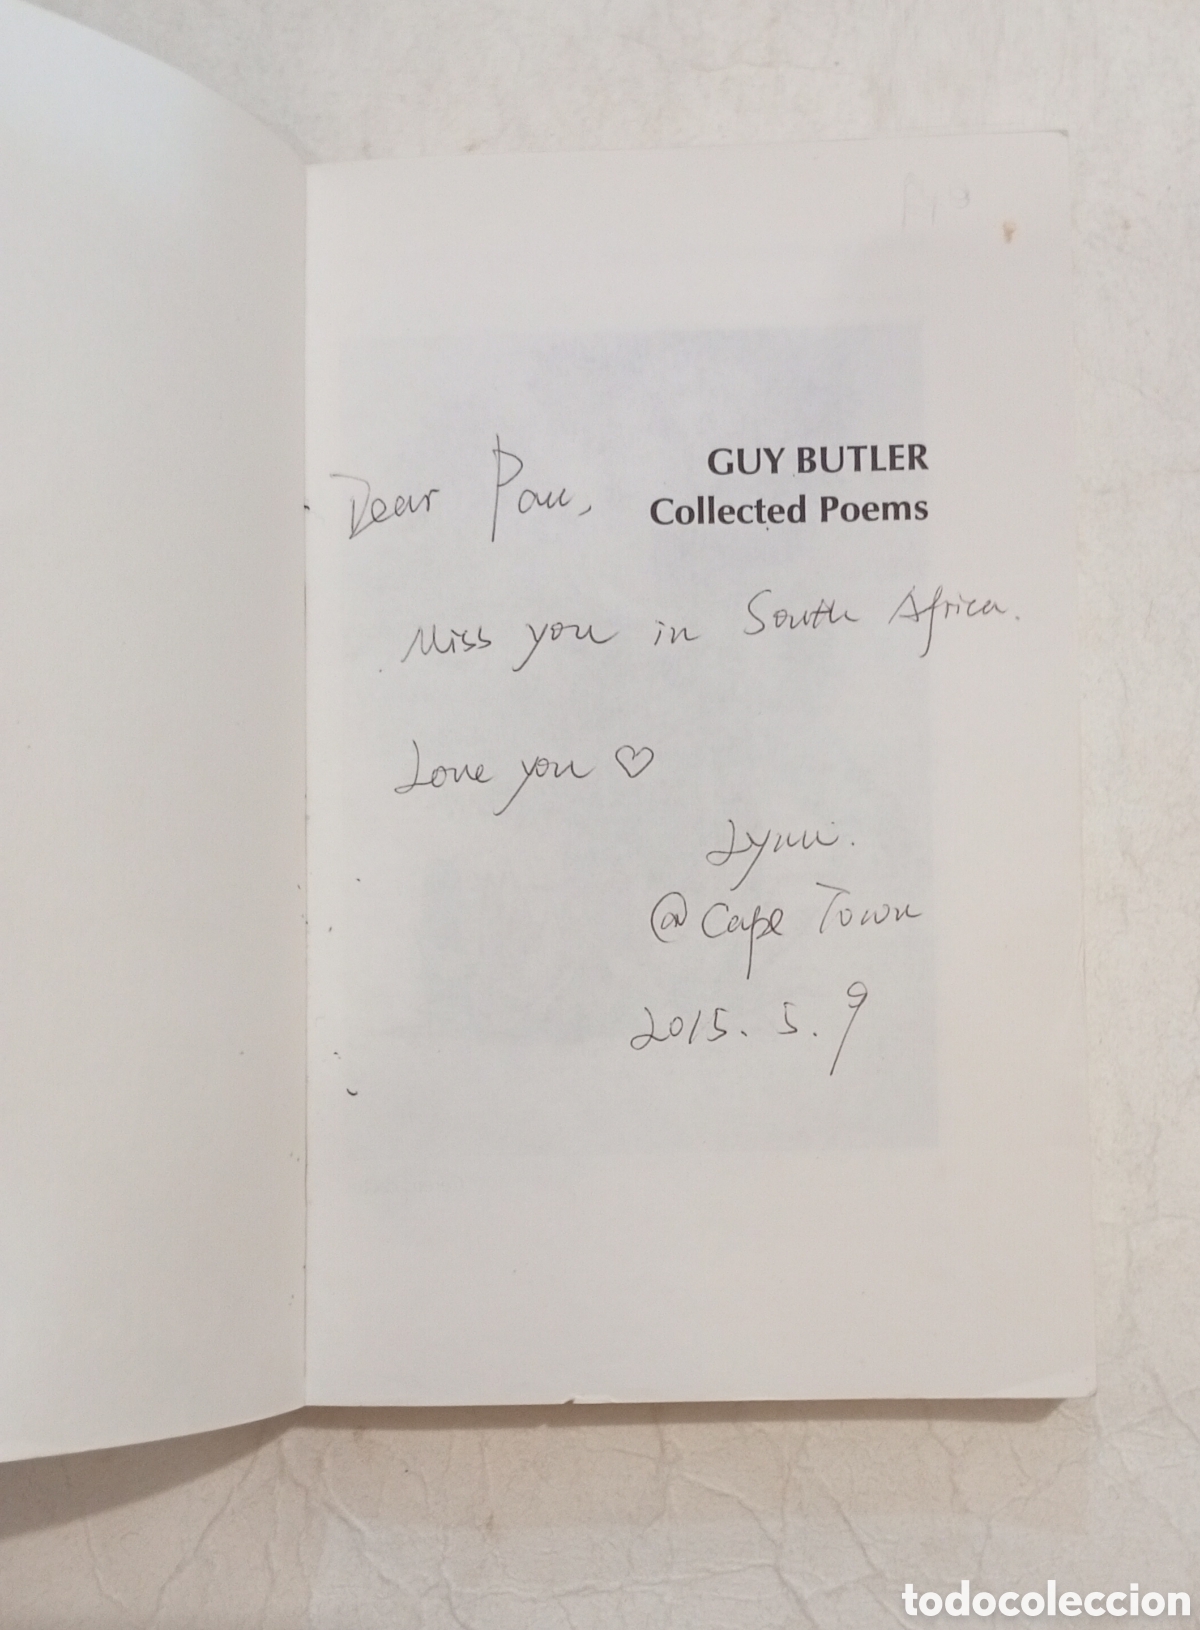 GUY BUTLER
Collected Poems
Dear Pau,
Miss you in South Africa.
Love you ♡
@ Cape Town
2015. 5. 9
todocoleccion